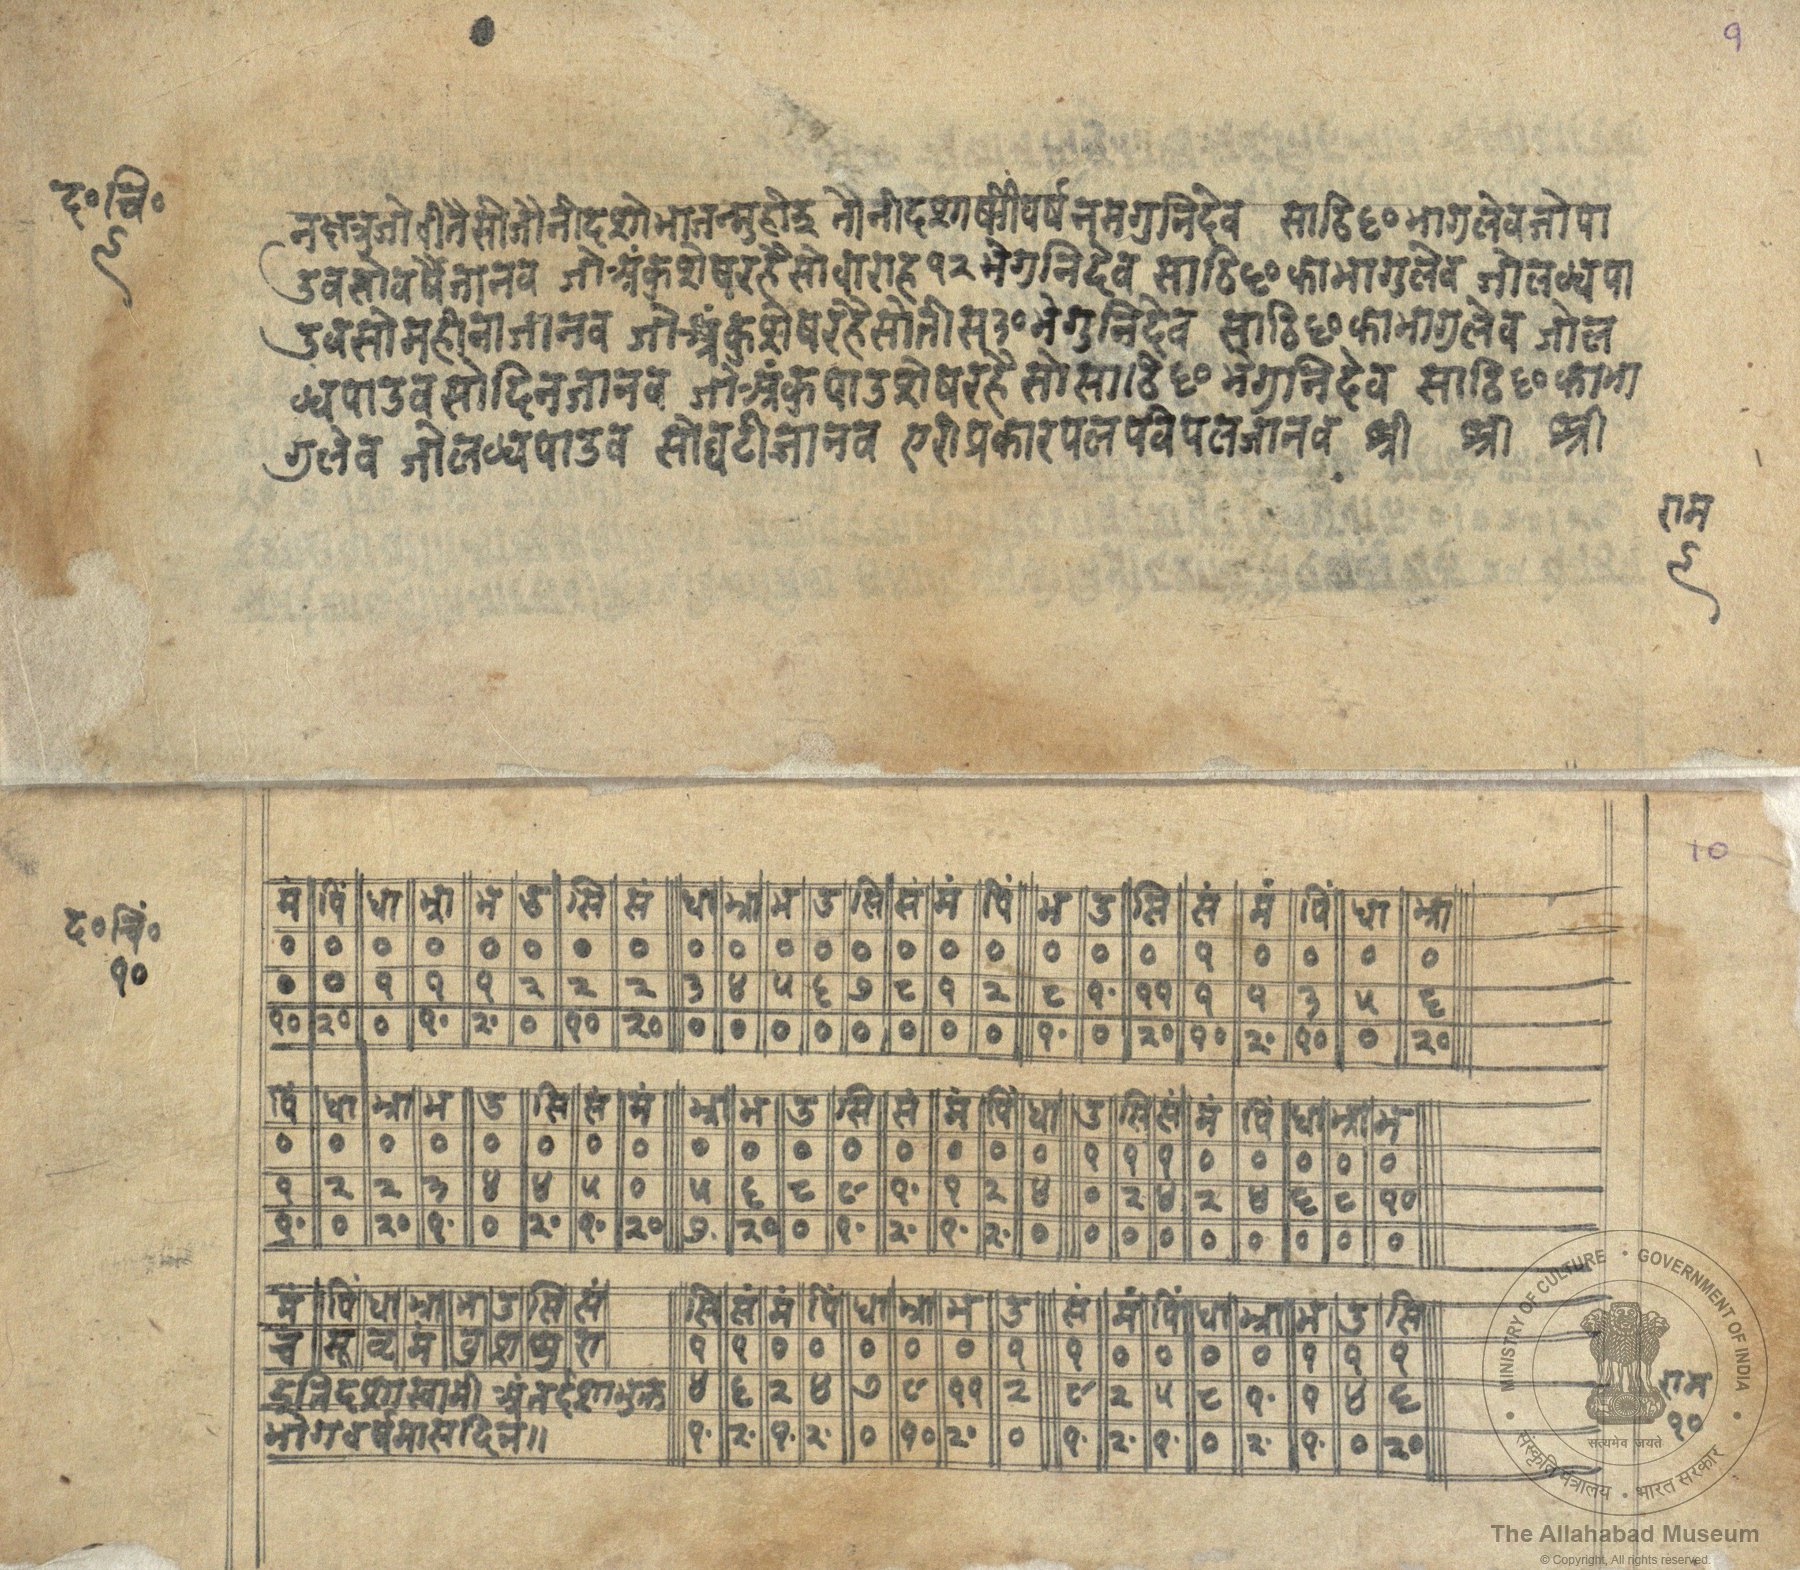 9
द॰ चिं॰
९
नक्षत्रजो वीतै सो जौनी दशो मा जन्मु होइ नौनी दशा षभी वर्ष नमे गुनि देव साठि ६० भाग लेव जो पा
उव सो वर्षै जानव जो अंक शेष रहै सो वाराह १२ मे गुनि देव साठि ६० का भागु लेव जो लब्ध पा
उव सो महीना जानव जो अंकु शेष रहै सो तीस् ३० मे गुनि देव साठि ६० का भाग लेव जो ल
ब्ध पाउव सो दिन जानव जो अंकु पाउ शेष रहै सो साठि ६० मे गुनि देव साठि ६० का भा
ग लेव जो लब्ध पाउव सो घटी जानव एही प्रकार पल पविपल जानव श्री श्री श्री
राम
९
10
द॰ चिं॰
१०
मं पिं धा भ्रा भ उ सि सं धा भ्रा भ उ सि सं मं पिं भ उ सि सं मं पिं धा भ्रा
० ० ० ० ० ० ० ० ० ० ० ० ० ० ० ० ० ० ० १ ० ० ० ०
० ० १ १ १ २ २ २ ३ ४ ५ ६ ७ ८ १ २ ८ १० ११ १ १ ३ ५ ६
१० २० ० १० २० ० १० २० ० ० ० ० ० ० ० ० १० ० २० १० २० १० ० २०
पिं धा भ्रा भ उ सि सं मं भ्रा भ उ सि सं मं पिं धा उ सि सं मं पिं धा भ्रा भ
० ० ० ० ० ० ० ० ० ० ० ० ० ० ० ० १ १ १ ० ० ० ० ०
१ २ २ ३ ४ ४ ५ ० ५ ६ ८ ९ १० १ २ ४ ० २ ४ २ ४ ६ ८ १०
१० ० २० १० ० २० १० २० ७ २० ० १० २० १० २० ० ० ० ० ० ० ० ० ०
मं पिं धा भ्रा भ उ सि सं सि सं मं पिं धा भ्रा भ उ सं मं पिं धा भ्रा भ उ सि
चं सू वृ मं वु श शु रा १ १ ० ० ० ० ० १ १ ० ० ० ० १ १ १
इति दशा स्वामी अंतर्दशा भुक्त ४ ६ २ ४ ७ ९ ११ २ ९ २ ५ ८ १० १ ४ ६
भोग वर्ष मास दिन॥ १० २० १० २० ० १० २० ० १० २० १० ० २० १० ० २०
राम
१०
MINISTRY OF CULTURE • GOVERNMENT OF INDIA
सत्यमेव जयते
संस्कृति मंत्रालय • भारत सरकार
The Allahabad Museum
© Copyright, All rights reserved.